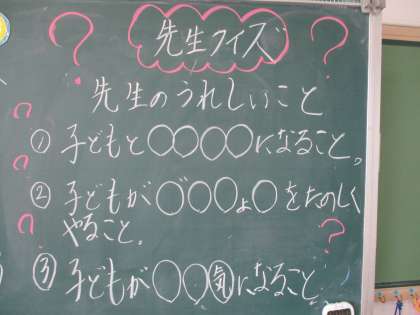 先生クイズ
先生のうれしいこと
① 子どもと○○○○になること。
② 子どもが○゛○○ょ○をたのしく
やること。
③ 子どもが○○気になること